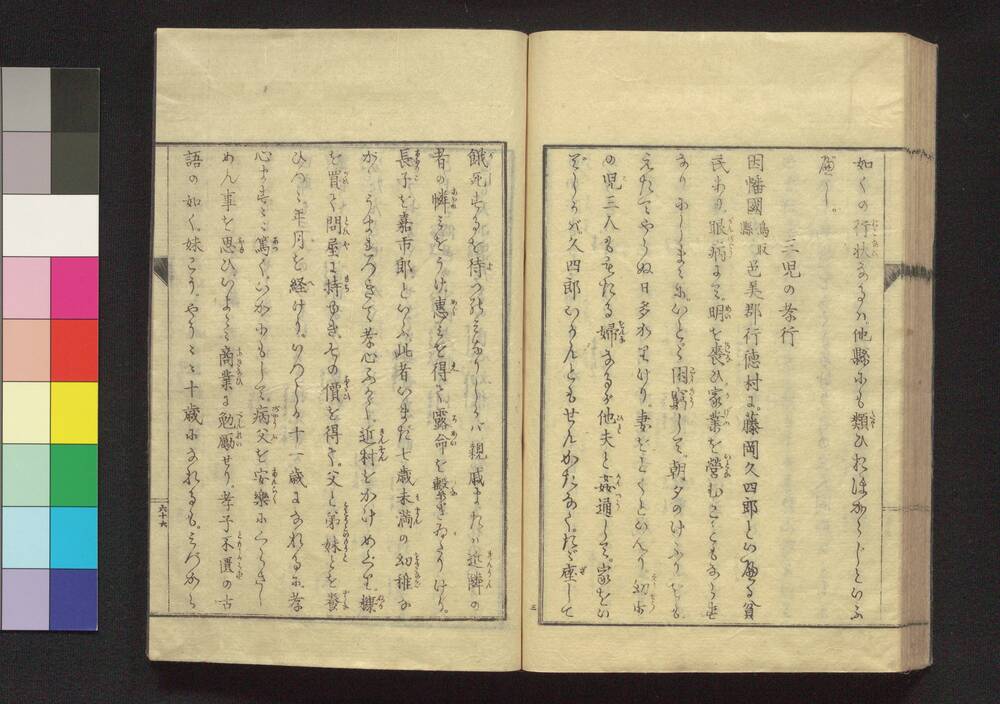 如くの行状なるハ他縣にも類ひれはあらじといふ
べし。
三児の孝行
因幡國鳥取縣邑美郡行徳村に。藤岡久四郎といへる貧
民あり。眼病にて。明を喪ひ家業を營むこともならず
ありにしまゝに。いとゞ困窮して。朝夕のけふりをも
えたてやらぬ日多かりけり。妻をとくといへり。幼少
の児三人もあたる婦なるが他夫と姦通して。家をい
でしかバ久四郎いかんともせんかたなく。たゞ座して
餓死するを待つのミなりしが親戚または近隣の
者の憐ミをうけ。惠ミを得て。露命を繋ぎゐたりけり。
長子を嘉市郎。といふ此者いまだ七歳未満の幼稚な
が。うまれつきて孝心ふかく。近村をかけめぐり。糠
を買て問屋に持ゆき。その價を得て。父と弟妹とを養
ひつゝ年月を経けり。いつしか十一歳になれるに。孝
心ます〳〵篤く。いかにもして。病父を安樂にくらさし
めん事を思ひ。いよ〳〵商業に勉勵せり。孝子不匱の古
語の如く。妹こう。やう〳〵十歳になれるも。みづから
三
六十六